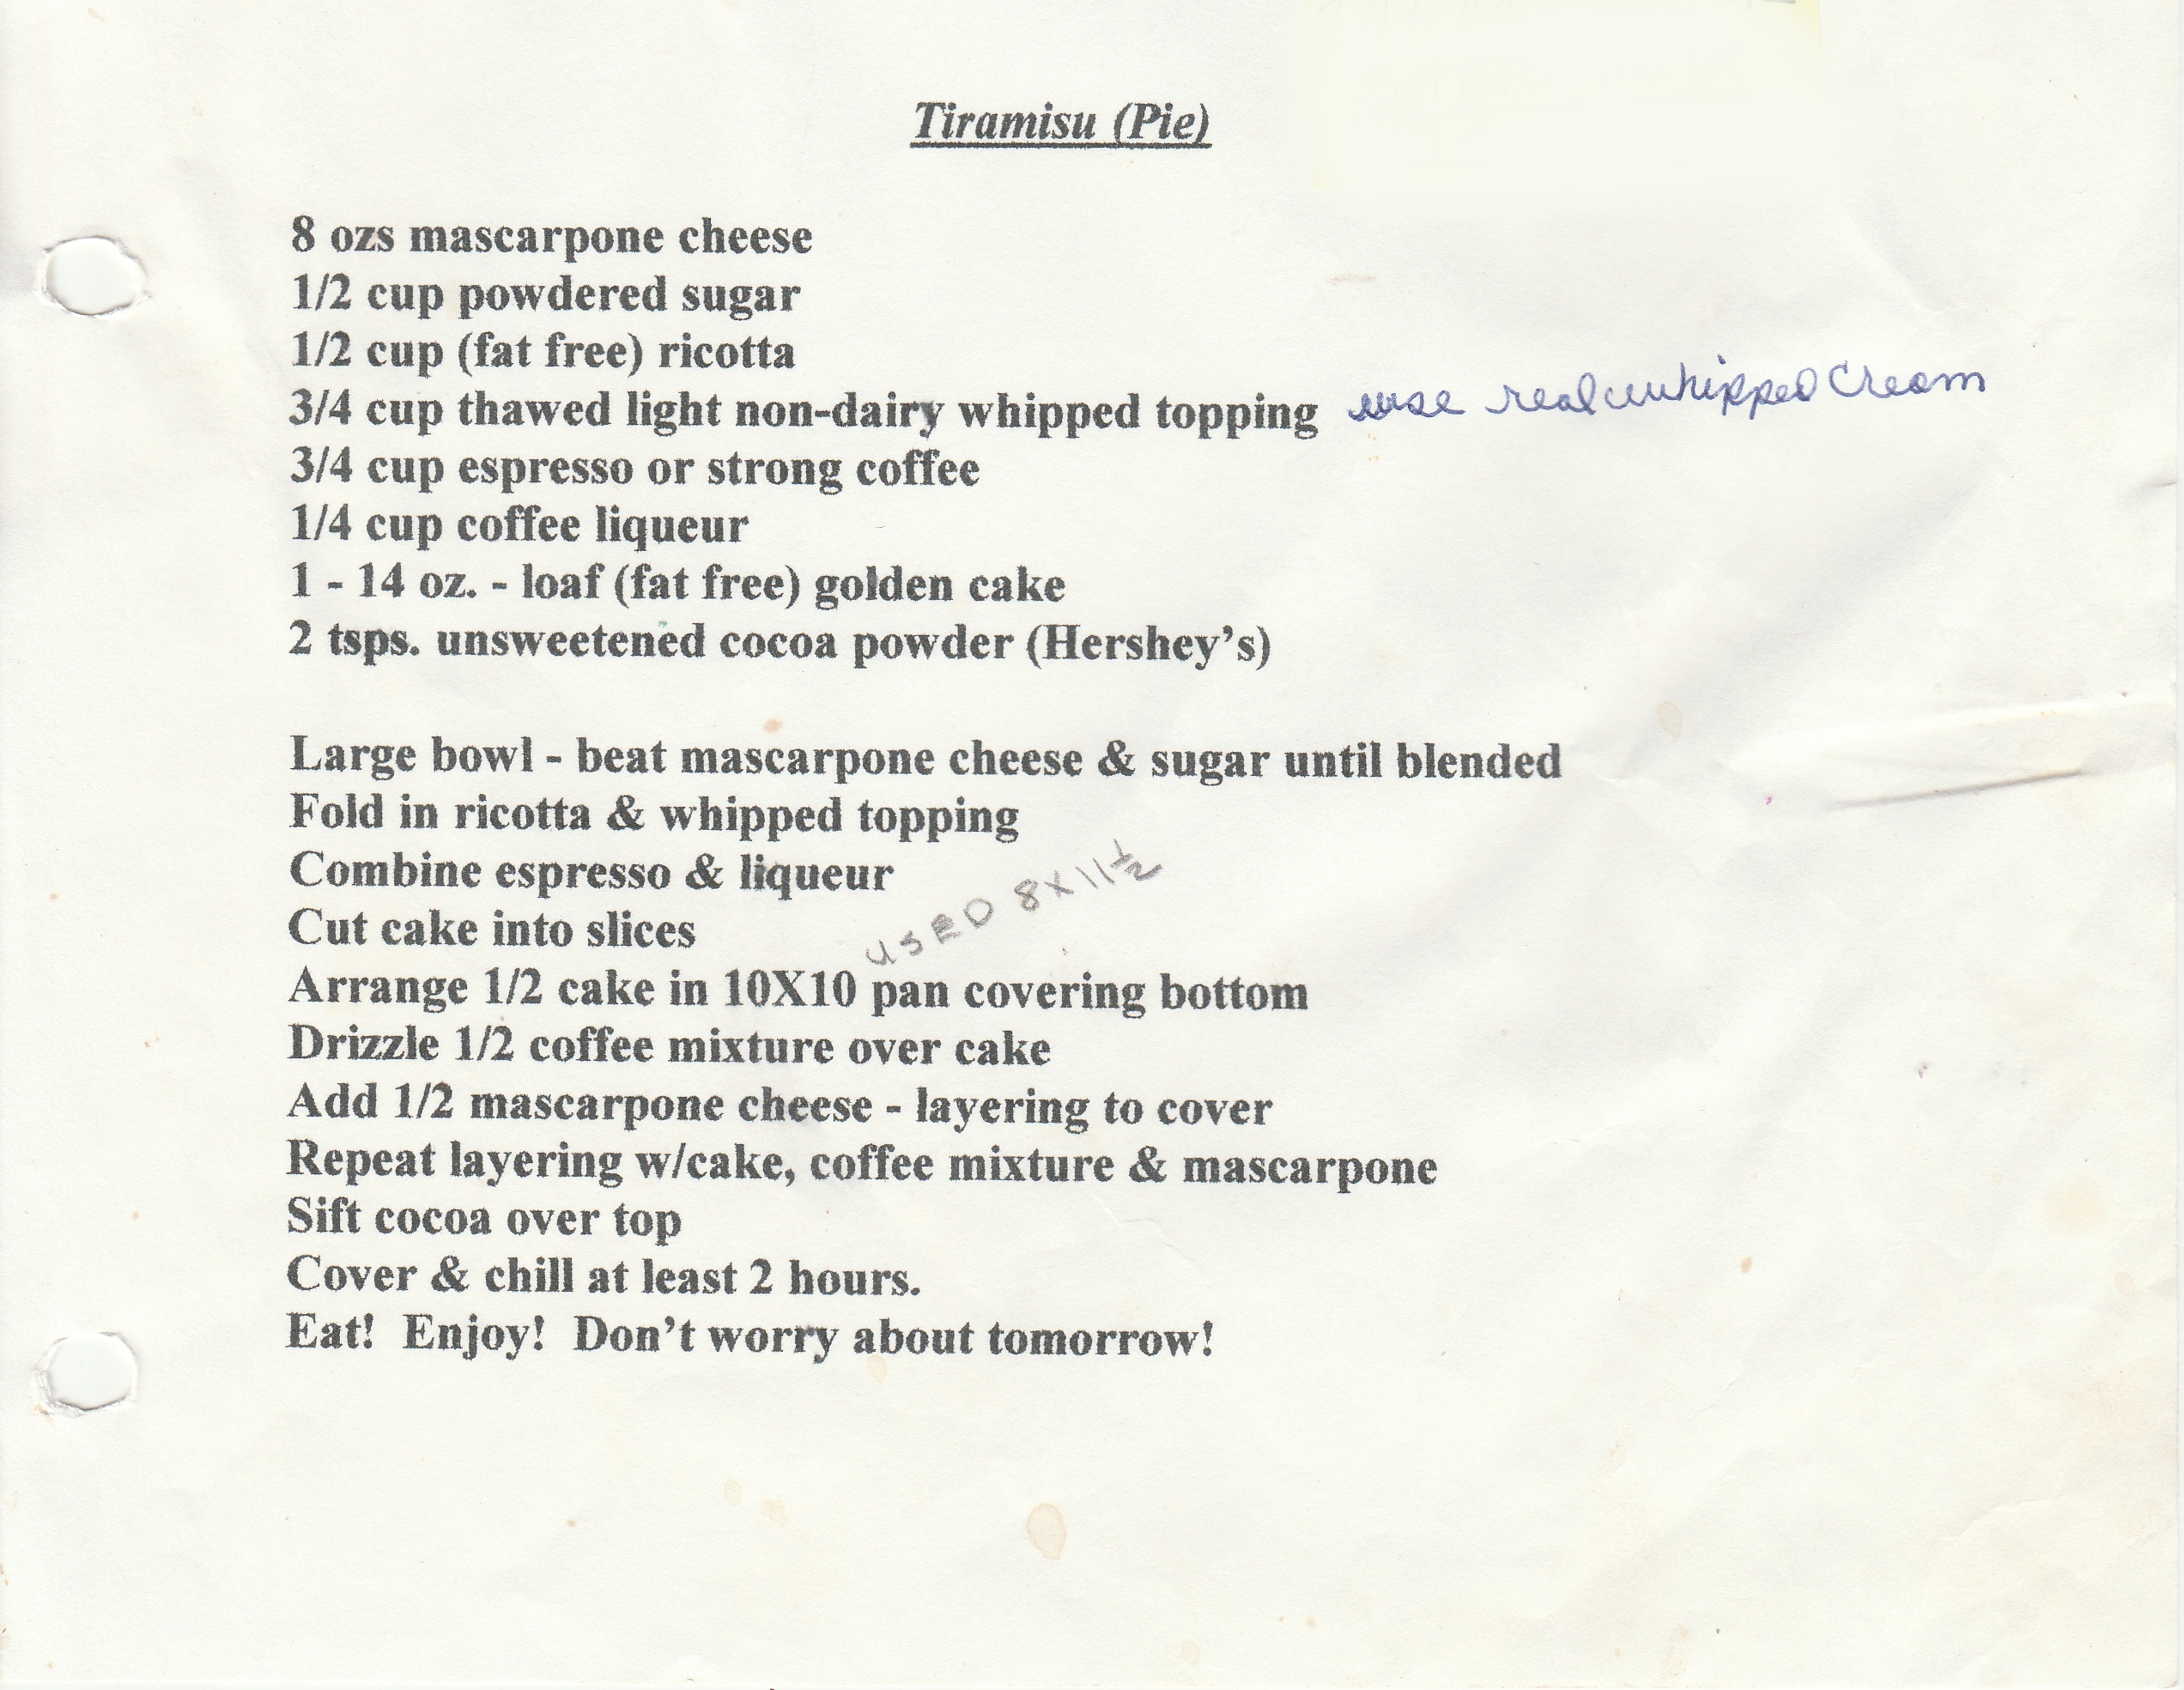 Tiramisu (Pie)
8 ozs mascarpone cheese
1/2 cup powdered sugar
1/2 cup (fat free) ricotta
3/4 cup thawed light non-dairy whipped topping use real whipped Cream
3/4 cup espresso or strong coffee
1/4 cup coffee liqueur
1 - 14 oz. - loaf (fat free) golden cake
2 tsps. unsweetened cocoa powder (Hershey's)
Large bowl - beat mascarpone cheese & sugar until blended
Fold in ricotta & whipped topping
Combine espresso & liqueur
Cut cake into slices
USED 8X11½
Arrange 1/2 cake in 10X10 pan covering bottom
Drizzle 1/2 coffee mixture over cake
Add 1/2 mascarpone cheese - layering to cover
Repeat layering w/cake, coffee mixture & mascarpone
Sift cocoa over top
Cover & chill at least 2 hours.
Eat!  Enjoy!  Don't worry about tomorrow!